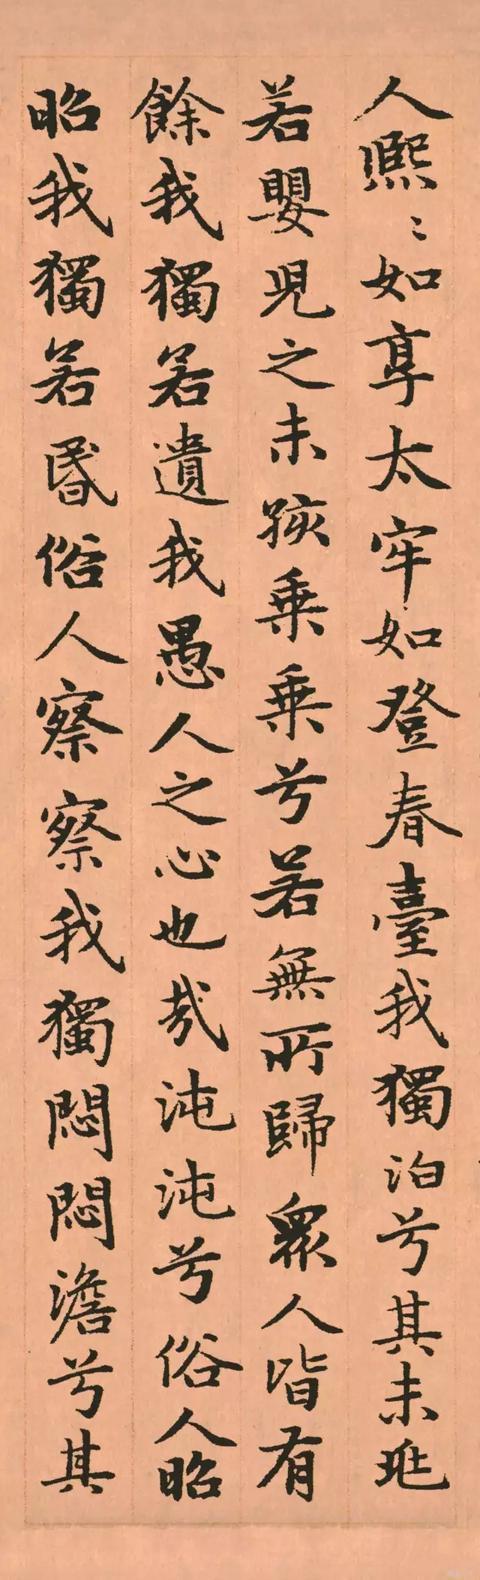 人熙〻如享太牢如登春臺我獨泊兮其未兆
若嬰兒之未孩乘乘兮若無所歸衆人皆有
餘我獨若遺我愚人之心也哉沌沌兮俗人昭
昭我獨若昬俗人察察我獨悶悶澹兮其